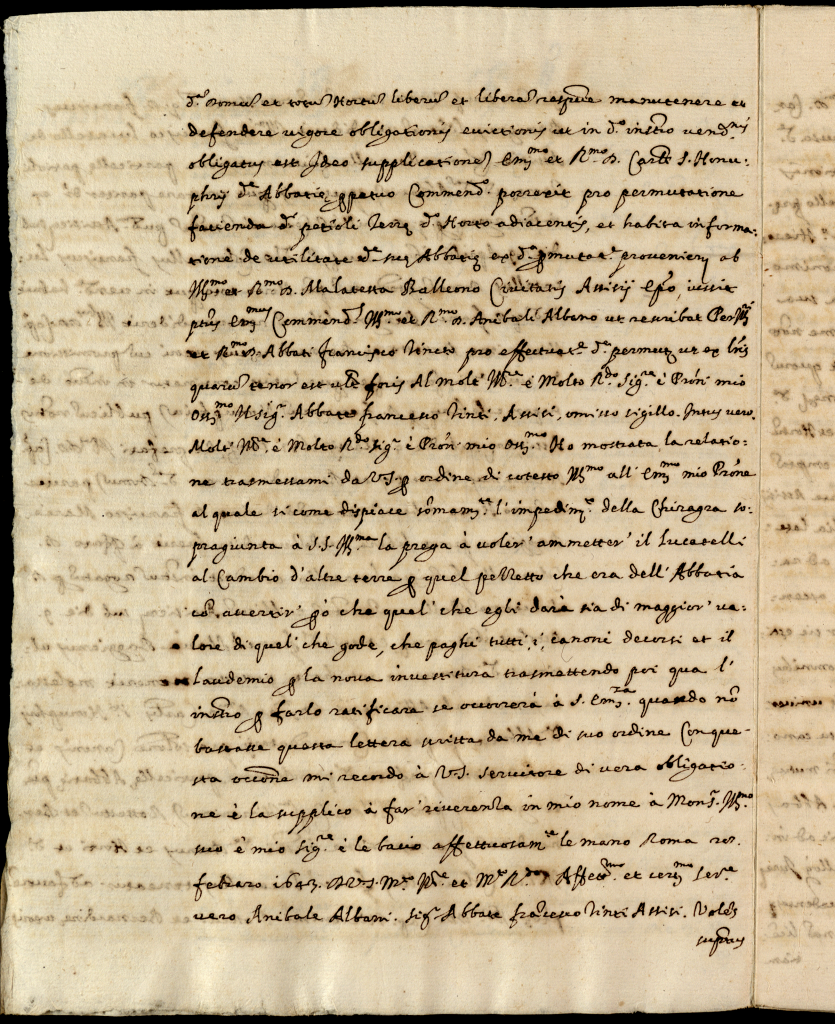 d.ᵃ Domus et totus Hortus liberus et libera respive manutenere et
defendere vigore obligationis evictionis ut in d.º instro vend.ⁿⁱˢ
obligatus est Ideo supplicationes Em̃ᵐᵒ et R.ᵐᵒ D. Card. S. Honu-
phrij d.ᵃ Abbatiæ ꝑpetuo Commend.º porrexit pro permutatione
facienda d. petioli Terræ d.º Horto adiacentis, et habita informa-
tione de utilitate d.ᵃ suæ Abbatiæ ex d.ᵃ ꝑmutat.ᵉ provenien ab
Ill̃ᵐᵒ et R.ᵐᵒ D. Malatesta Balleono Civitatis Assisij Epo, iussit
ptus Em̃ᵐᵘˢ Commend.ˢ Ill̃ᵐᵒ et R.ᵐᵒ D. Anibali Albano ut rescribat PerIll̃
et R.ᵐᵒ D. Abbati Francisco Vincto pro effectuat.ᵉ d.ᵃ permut ut ex lris
quarus tenor est vlt foris Al Molt' Ill.ᵉ é Molto R.ᵈᵒ Sig.ᵉ é Prõñ mio
Oss̃ᵐᵒ Il Sig.ʳ Abbate francesco Vinti, Assisi, omisso sigillo. Intus vero.
Molt' Ill.ᵉ é Molto R.ᵈᵒ Sig.ʳᵉ é Prõñ mio Oss̃ᵐᵒ Ho mostrata la relatio-
ne trasmessami da V.S. ꝑ ordine di cotesto Ill̃ᵐᵒ all' Em̃ᵐᵒ mio Prõne
al quale si come dispiace sõmam.ᵗᵉ l'impedim.ᵗᵒ della Chiragra so-
pragiunta à S.S. Ill̃ᵐᵃ la prega à voler' ammetter' il Lucatelli
al Cambio d'altre terre ꝑ quel pezzetto che era dell'Abbatia
cõ avertir' ꝑò che quel' che egli darà sia di maggior' va-
lore di quel' che gode, che paghi tutti, i, canoni decorsi et il
laudemio ꝑ la nova investitura trasmattendo poi qua l'
instro ꝑ farlo ratificare se occorrerà à S. Em̃ᶻᵃ quando nõ
bastasse questa lettera scritta da me di suo ordine Con que-
sta occõne mi recordo à V.S. servitore di vera obligatio-
ne è la supplico à far' riverenza in mio nome à Mons.ʳ Ill̃ᵐᵒ
suo é mio Sig.ʳᵉ é le bacio affettuosam.ᵗᵉ le mano Roma
febraro 1643. D V.S. M.ᵗᵒ Ill.ᵉ et M.ᵗᵒ R.ᵈᵃ Affett.ᵐᵒ et cert̃ᵐᵒ Ser.ʳᵉ
vero Anibale Albani. Sig.ʳ Abbate fran.ᶜᵒ Vinti Assisi. Volẽs
suptus